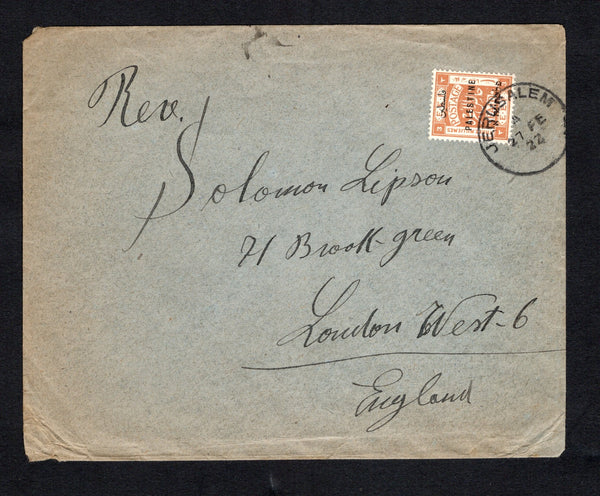 Rev.
Solomon Lipson
71 Brook-green
London West-6
England
PALESTINE
POSTAGE
JERUSALEM
27 FE
22